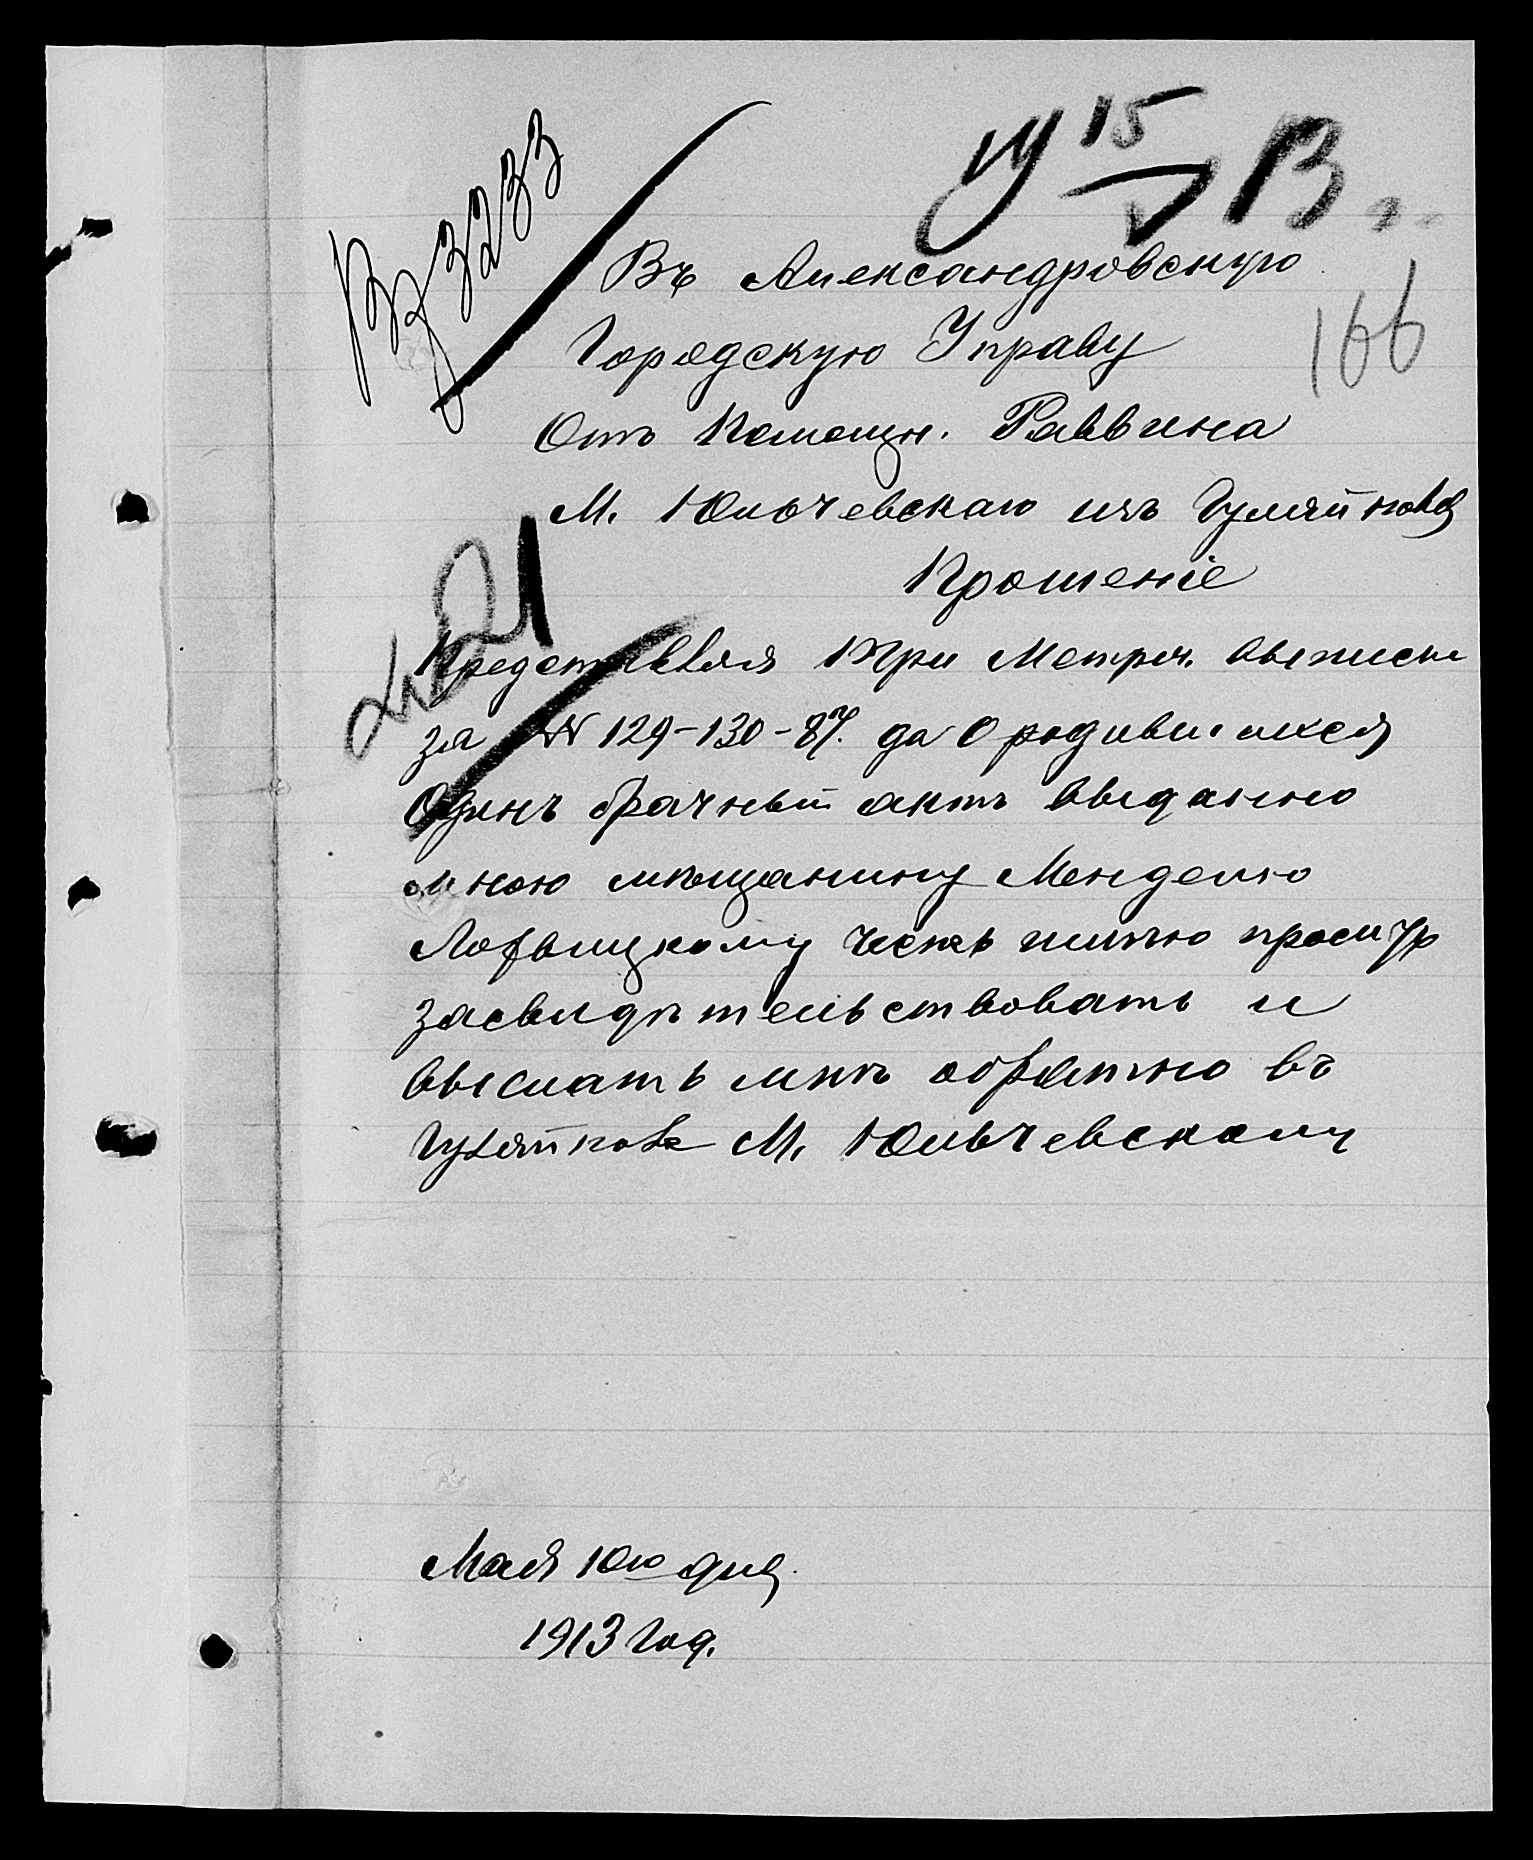 15
V 13
Вх 3233
166
Въ Александровскую
Городскую Управу
Отъ Помощн. Раввина
М. Юльчевскаго изъ Гуляйполя
Прошеніе
Представляя три Метрич. выписи
за № 129-130-87. да о родившихся
Одинъ брачный актъ выданно
мною мѣщанину Менделю
просит
засвидѣтельствовать и
выслать мнѣ обратно въ
Гуляйполе М. Юльчевскому
Мая 10го дня.
1913 год.